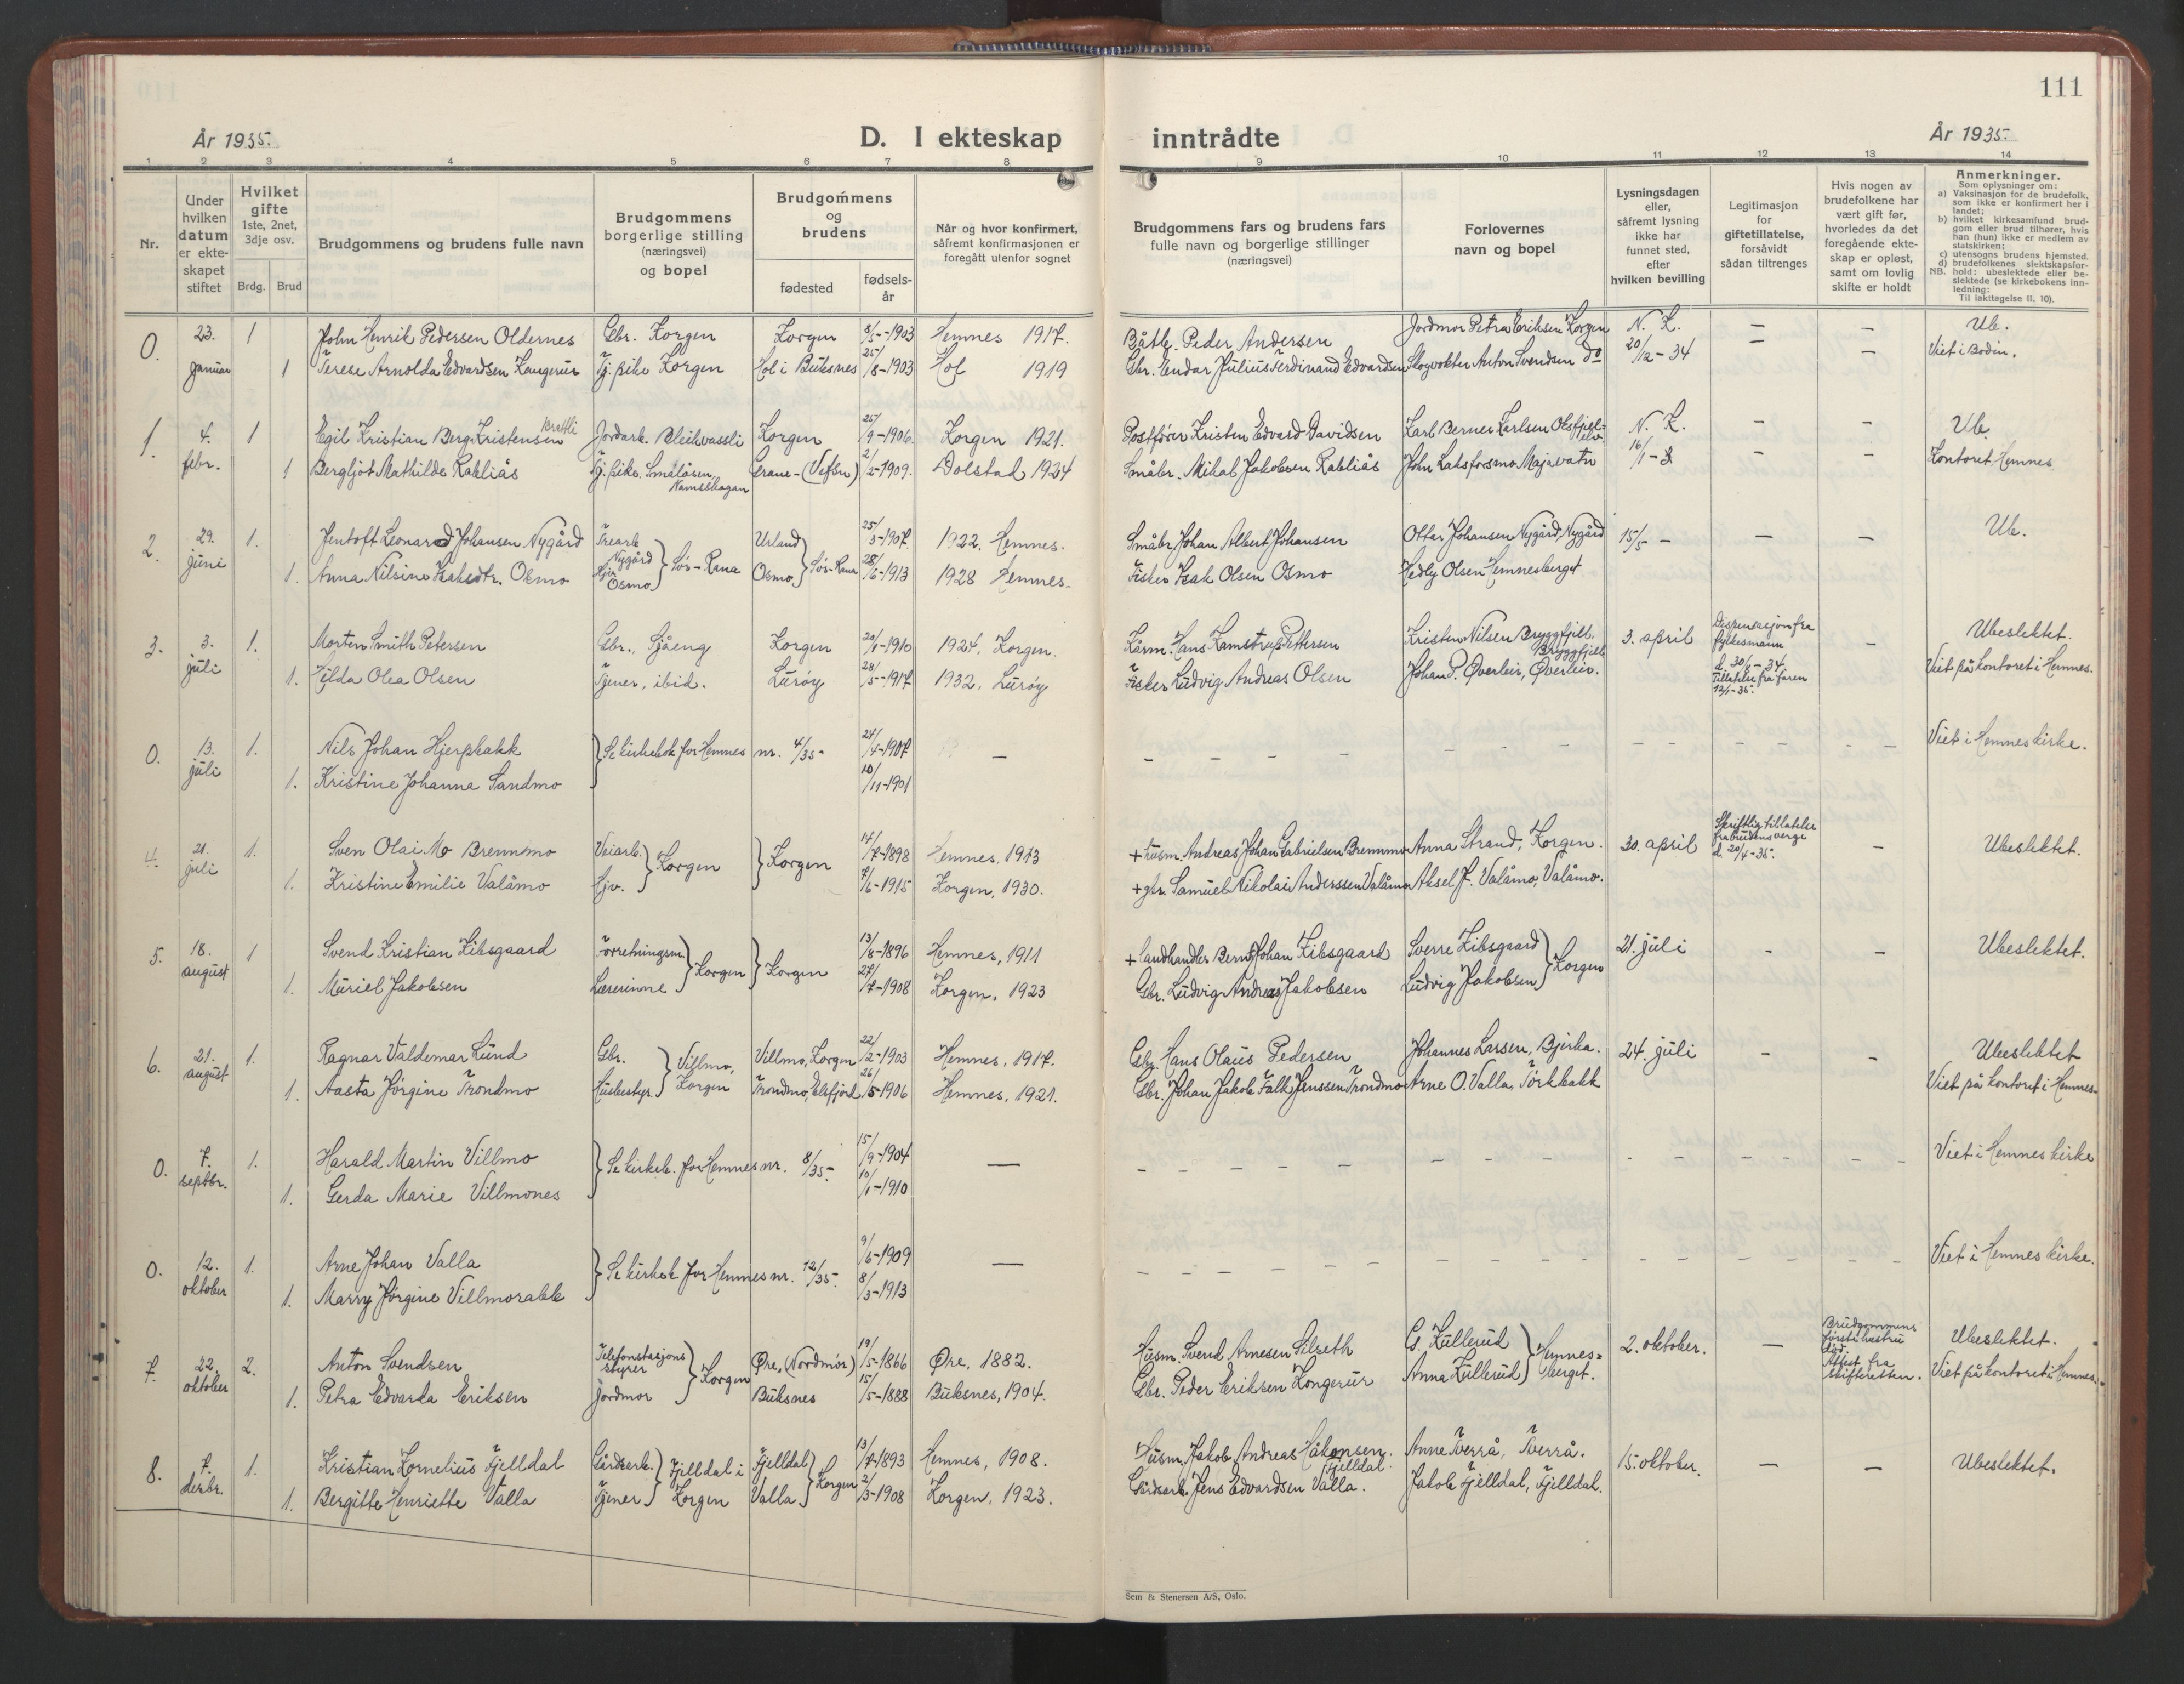 111
År 1935.
D. I ekteskap inntrådte
År 1935
1 2 3 4 5 6 7 8 9 10 11 12 13 14
Nr.
Under hvilken datum er ekteskapet stiftet
Hvilket gifte 1ste, 2net, 3dje osv.
Brdg. Brud
Brudgommens og brudens fulle navn
Brudgommens borgerlige stilling (næringsvei) og bopel
Brudgommens og brudens
fødested
fødsels-år
Når og hvor konfirmert, såfremt konfirmasjonen er foregått utenfor sognet
Brudgommens fars og brudens fars fulle navn og borgerlige stillinger (næringsvei)
Forlovernes navn og bopel
Lysningsdagen eller, såfremt lysning ikke har funnet sted, efter hvilken bevilling
Legitimasjon for giftetillatelse, forsåvidt sådan tiltrenges
Hvis nogen av brudefolkene har vært gift før, hvorledes da det foregående ekteskap er opløst, samt om lovlig skifte er holdt
Anmerkninger.
Som oplysninger om:
a) Vaksinasjon for de brudefolk, som ikke er konfirmert her i landet;
b) hvilket kirkesamfund brudgom eller brud tilhører, hvis han (hun) ikke er medlem av statskirken;
c) utensogns brudens hjemsted.
d) brudefolkenes slektskapsforhold: ubeslektede eller beslektede (se kirkebokens innledning:
NB.
Til iakttagelse II. 10).
0. 23. januar 1 John Henrik Pedersen Oldernes Gbr. Korgen Korgen 8/5-1903 Hemnes 1917. Båtb. Peder Andersen Jordmor Petra Eriksen Korgen N. K. — — Ub.
1 Terese Arnolda Edvardsen Kongerur Tj. pike Korgen Hol i Buksnes 25/8-1903 Hol 1919 Gbr. Endar Julius Ferdinand Edvardsen Skogvokter Anton Svendsen do 20/12-34 — — Viet i Bodin.
1. 4. febr. 1 Egil Kristian Berg Kristensen Brattli Jordarb. Bleikvassli Korgen 25/9-1906. Korgen 1921. Postfører Kristen Edvard Davidsen Karl Berner Karlsen N. K. — — Ub.
1 Bergljot Mathilde Kabliås Tj. pike. Smålåsen, Namsskogan Grane-(Vefsn) 2/2-1909. Dolstad 1924 Småbr. Mikal Jakobsen Kabliås John Laksforsmo Majavatn 16/1- — — Kontoret Hemnes
2. 29. juni 1. Jentoft Leonard Johansen Nygård Trearb. Nygård Urland 25/3-1907. 1922. Hemnes. Småbr. Johan Albert Johansen Ottar Johansen Nygård, Nygård 15/5 — — — Ub.
1. Anna Nilsine Isaksdtr. Osmo Hjv. Osmo } Sør-Rana Osmo } Sør-Rana 28/6-1913 1928 Hemnes. Fisker Isak Olsen Osmo Hedly Olsen Hemnesberget
3. 3. juli 1. Morten Smith Petersen Gbr., Sjåeng Korgen 20/1-1910 1924. Korgen. Hans Kamstrup Pettersen Kristen Nilsen Bryggfjell, Bryggfjell 3. april Dispensasjon fra fylkesmann d. 30/ -34. Tillatelse fra faren 12/1-35. — Ubeslektet.
1. Hilda Olea Olsen Tjener, ibid. Lurøy 28/5-1917 1932. Lurøy Fisker Ludvig Andreas Olsen Johan P. Øverleir, Øverleir. Viet på kontoret i Hemnes.
0. 13. juli 1. Nils Johan Hjerpbakk } Se kirkebok for Hemnes nr. 4/35- 24/4-1907 — Viet i Hemnes kirke.
1. Kristine Johanna Sandmo 10/11-1901
4. 21. juli 1. Sven Olai Mo Brennmo Veiarb. } Korgen } Korgen 14/7-1898 Hemnes, 1913 + husm. Andreas Johan Gabrielsen Brennmo Anna Strand, Korgen. 30. april Skriftlig tillatelse fra brudens verge d. 20/4-35. — Ubeslektet.
1. Kristine Emilie Valåmo Hjv. 7/6-1915 Korgen, 1930. + gbr. Samuel Nikolai Anderssen Valåmo Aksel J. Valåmo, Valåmo.
5. 18. august 1 Svend Kristian Kibsgaard Forretningsm. } Korgen } Korgen 13/8-1896 Hemnes, 1911 + Landhandler Bernt Johan Kibsgaard Sverre Kibsgaard } Korgen 21. juli — — Ubeslektet.
1. Muriel Jakobsen Lærerinne 27/7-1908 Korgen, 1923 Gbr. Ludvig Andreas Jakobsen Ludvig Jakobsen
6. 21. august 1. Ragnar Valdemar Lund Gbr. } Villmo, Korgen Villmo, Korgen 22/2-1903 Hemnes, 1917. Gbr. Hans Olaus Pedersen Johannes Larsen, Bjerka. 24. juli — — Ubeslektet
1. Aasta Jørgine Trondmo Husbestyr. Trondmo, Elsfjord 26/5-1906 Hemnes, 1921. Gbr. Johan Jakob Falk Jenssen Trondmo Arne O. Valla Tørkbakk Viet på kontoret i Hemnes
0. 7. septbr. 1. Harald Martin Villmo } Se kirkeb. for Hemnes nr. 8/35- 15/9-1904 — Viet i Hemnes kirke
1. Gerda Marie Villmones 10/1-1910
0. 12. oktober 1. Arne Johan Valla } Se kirkeb. for Hemnes nr. 12/35. 9/6-1909 — Viet i Hemnes kirke.
1. Marry Jørgine Villmorabb 8/3-1913
7. 22. oktober 2. Anton Svendsen Telefonstasjons styrer } Korgen Øre, (Nordmør) 19/5-1866 Øre, 1882. Husm. Svend Arnesen Silseth G. Kullerud } Hemnes-berget. 2. oktober. — Brudgommens første hustru død. Attest fra skifteretten. Ubeslektet.
1. Petra Edvarda Eriksen Jordmor Buksnes 15/5-1888 Buksnes, 1904. Gbr. Peder Eriksen Kongerur Anna Kullerud Viet på kontoret i Hemnes.
8. 7. desbr. 1. Kristian Kornelius Fjelldal Gårdsarb. } Fjelldal i Korgen Fjelldal } Korgen 13/7-1893 Hemnes, 1908. Husm. Jakob Andreas Håkonsen Fjelldal. Anne Tverrå, Tverrå. 15. oktober. — — Ubeslektet.
1. Bergitte Henriette Valla Tjener Valla 2/3-1908 Korgen, 1923. Gårdsarb. Jens Edvardsen Valla. Jakob Fjelldal, Fjelldal.
Sem & Stenersen A/S, Oslo.